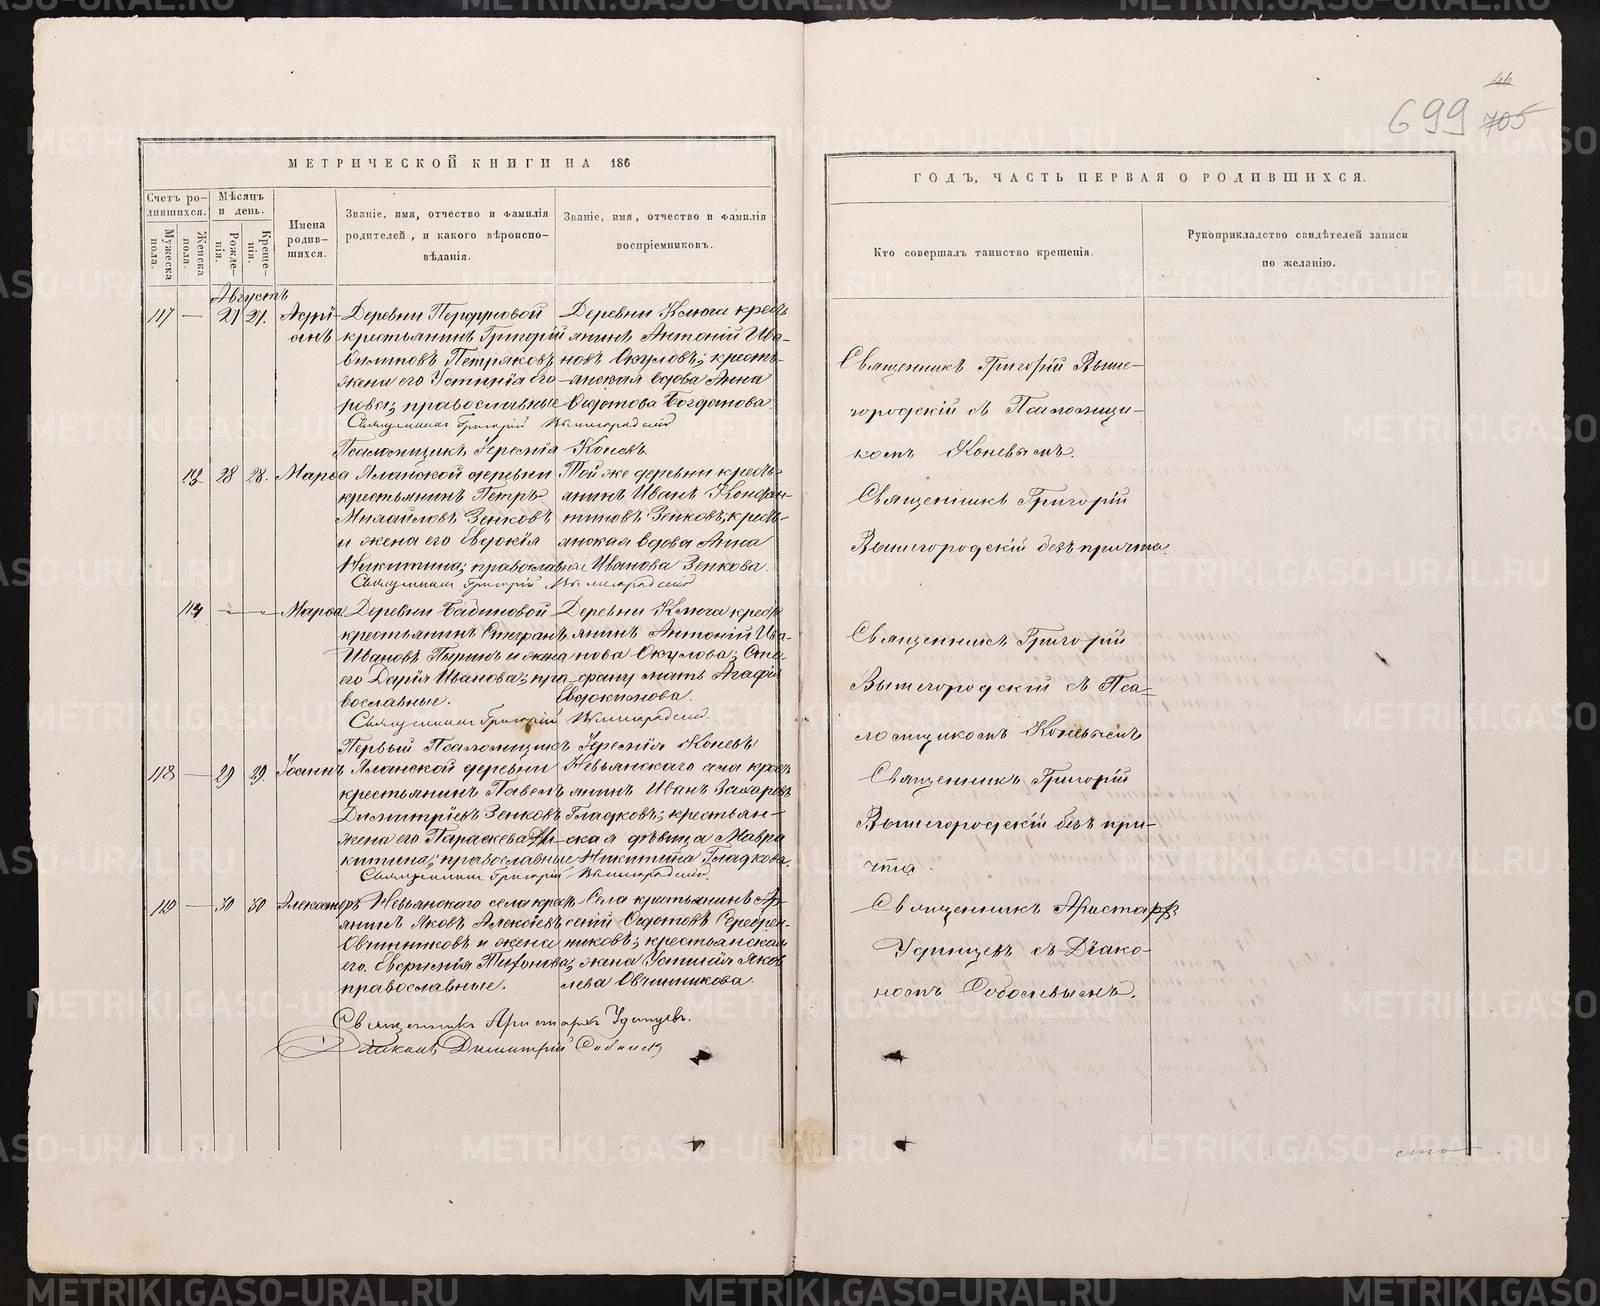 699 705
МЕТРИЧЕСКОЙ КНИГИ НА 186
Счетъ ро-
дившихся.
Мужеска пола.
Женска пола.
Мѣсяцъ
и день.
Рожде-
нія.
Креще-
нія.
Имена
родив-
шихся.
Званіе, имя, отчество и фамилія
родителей, и какого вѣроиспо-
вѣданія.
Званіе, имя, отчество и фамилія
воспріемниковъ.
Августъ
117 — 21 21.
Деревни
крестьянинъ Григорій
Петряковъ
жена его Устинія Его-
рова; православные
Деревни Ключа кресть
янинъ Антоній Ива-
новъ Окуловъ; кресть-
янская вдова Анна
Федотова Богданова.
Священникъ Григорій Вышегородскій
Псаломщикъ Іеремія Коневъ.
28 28. Марѳа
Аланской деревни
крестьянинъ Петръ
Михайловъ Зенковъ
и жена его Евдокія
Никитина; православные
Той же деревни кресть-
янинъ Иванъ Констан-
тиновъ Зенковъ; кресть-
янская вдова Анна
Иванова Зенкова.
Священникъ Григорій Вышегородскій
114 — „ — „ — Марѳа
Деревни Бадиновой
крестьянинъ Стефанъ
Ивановъ Пыринъ и жена
его Дарія Иванова; пра-
вославные.
Деревни Ключа кресть
янинъ Антоній Ива-
нова Окулова; Сте-
фану мать Агафія
Евдокимова.
Священникъ Григорій Вышегородскій
Первый Псаломщикъ Іеремія Коневъ
118 — 29 29. Іоаннъ
Аланской деревни
крестьянинъ Павелъ
Димитріевъ Зенковъ
жена его Параскева Ни-
китина; православные
Невьянскаго села кресть
янинъ Иванъ Захаровъ
Гладковъ; крестьян-
ская дѣвица Мавра
Никитина Гладкова.
Священникъ Григорій Вышегородскій.
119 — 30 30 Александръ
Невьянскаго села крест
янинъ Яковъ Алексѣевъ
Овчинниковъ и жена
его Евфимія Тихонова;
православные.
Села крестьянинъ Ар-
сеній Федотовъ Серебрен-
никовъ; крестьянская
жена Устинія Яков
лева Овчинникова.
Священникъ Аристархъ Удинцевъ.
Діаконъ Димитрій
ГОДЪ, ЧАСТЬ ПЕРВАЯ О РОДИВШИХСЯ.
Кто совершалъ таинство крещенія.
Рукоприкладство свидѣтелей записи
по желанію.
Священникъ Григорій Выше-
городскій съ Псаломщи-
комъ Коневымъ.
Священникъ Григорій
Вышегородскій безъ причта.
Священникъ Григорій
Вышегородскій съ Пса-
ломщикомъ Коневымъ
Священникъ Григорій
Вышегородскій безъ при-
чта.
Священникъ Аристархъ
Удинцевъ съ Діако-
номъ Соболевымъ.
сто
METRIKI.GASO-URAL.RU